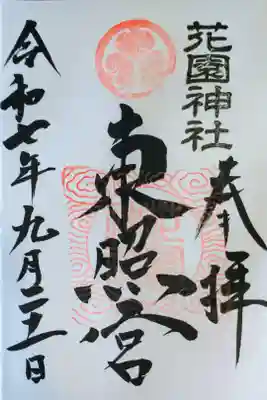 花園神社
奉拝
東照宮
令和七年九月二十一日